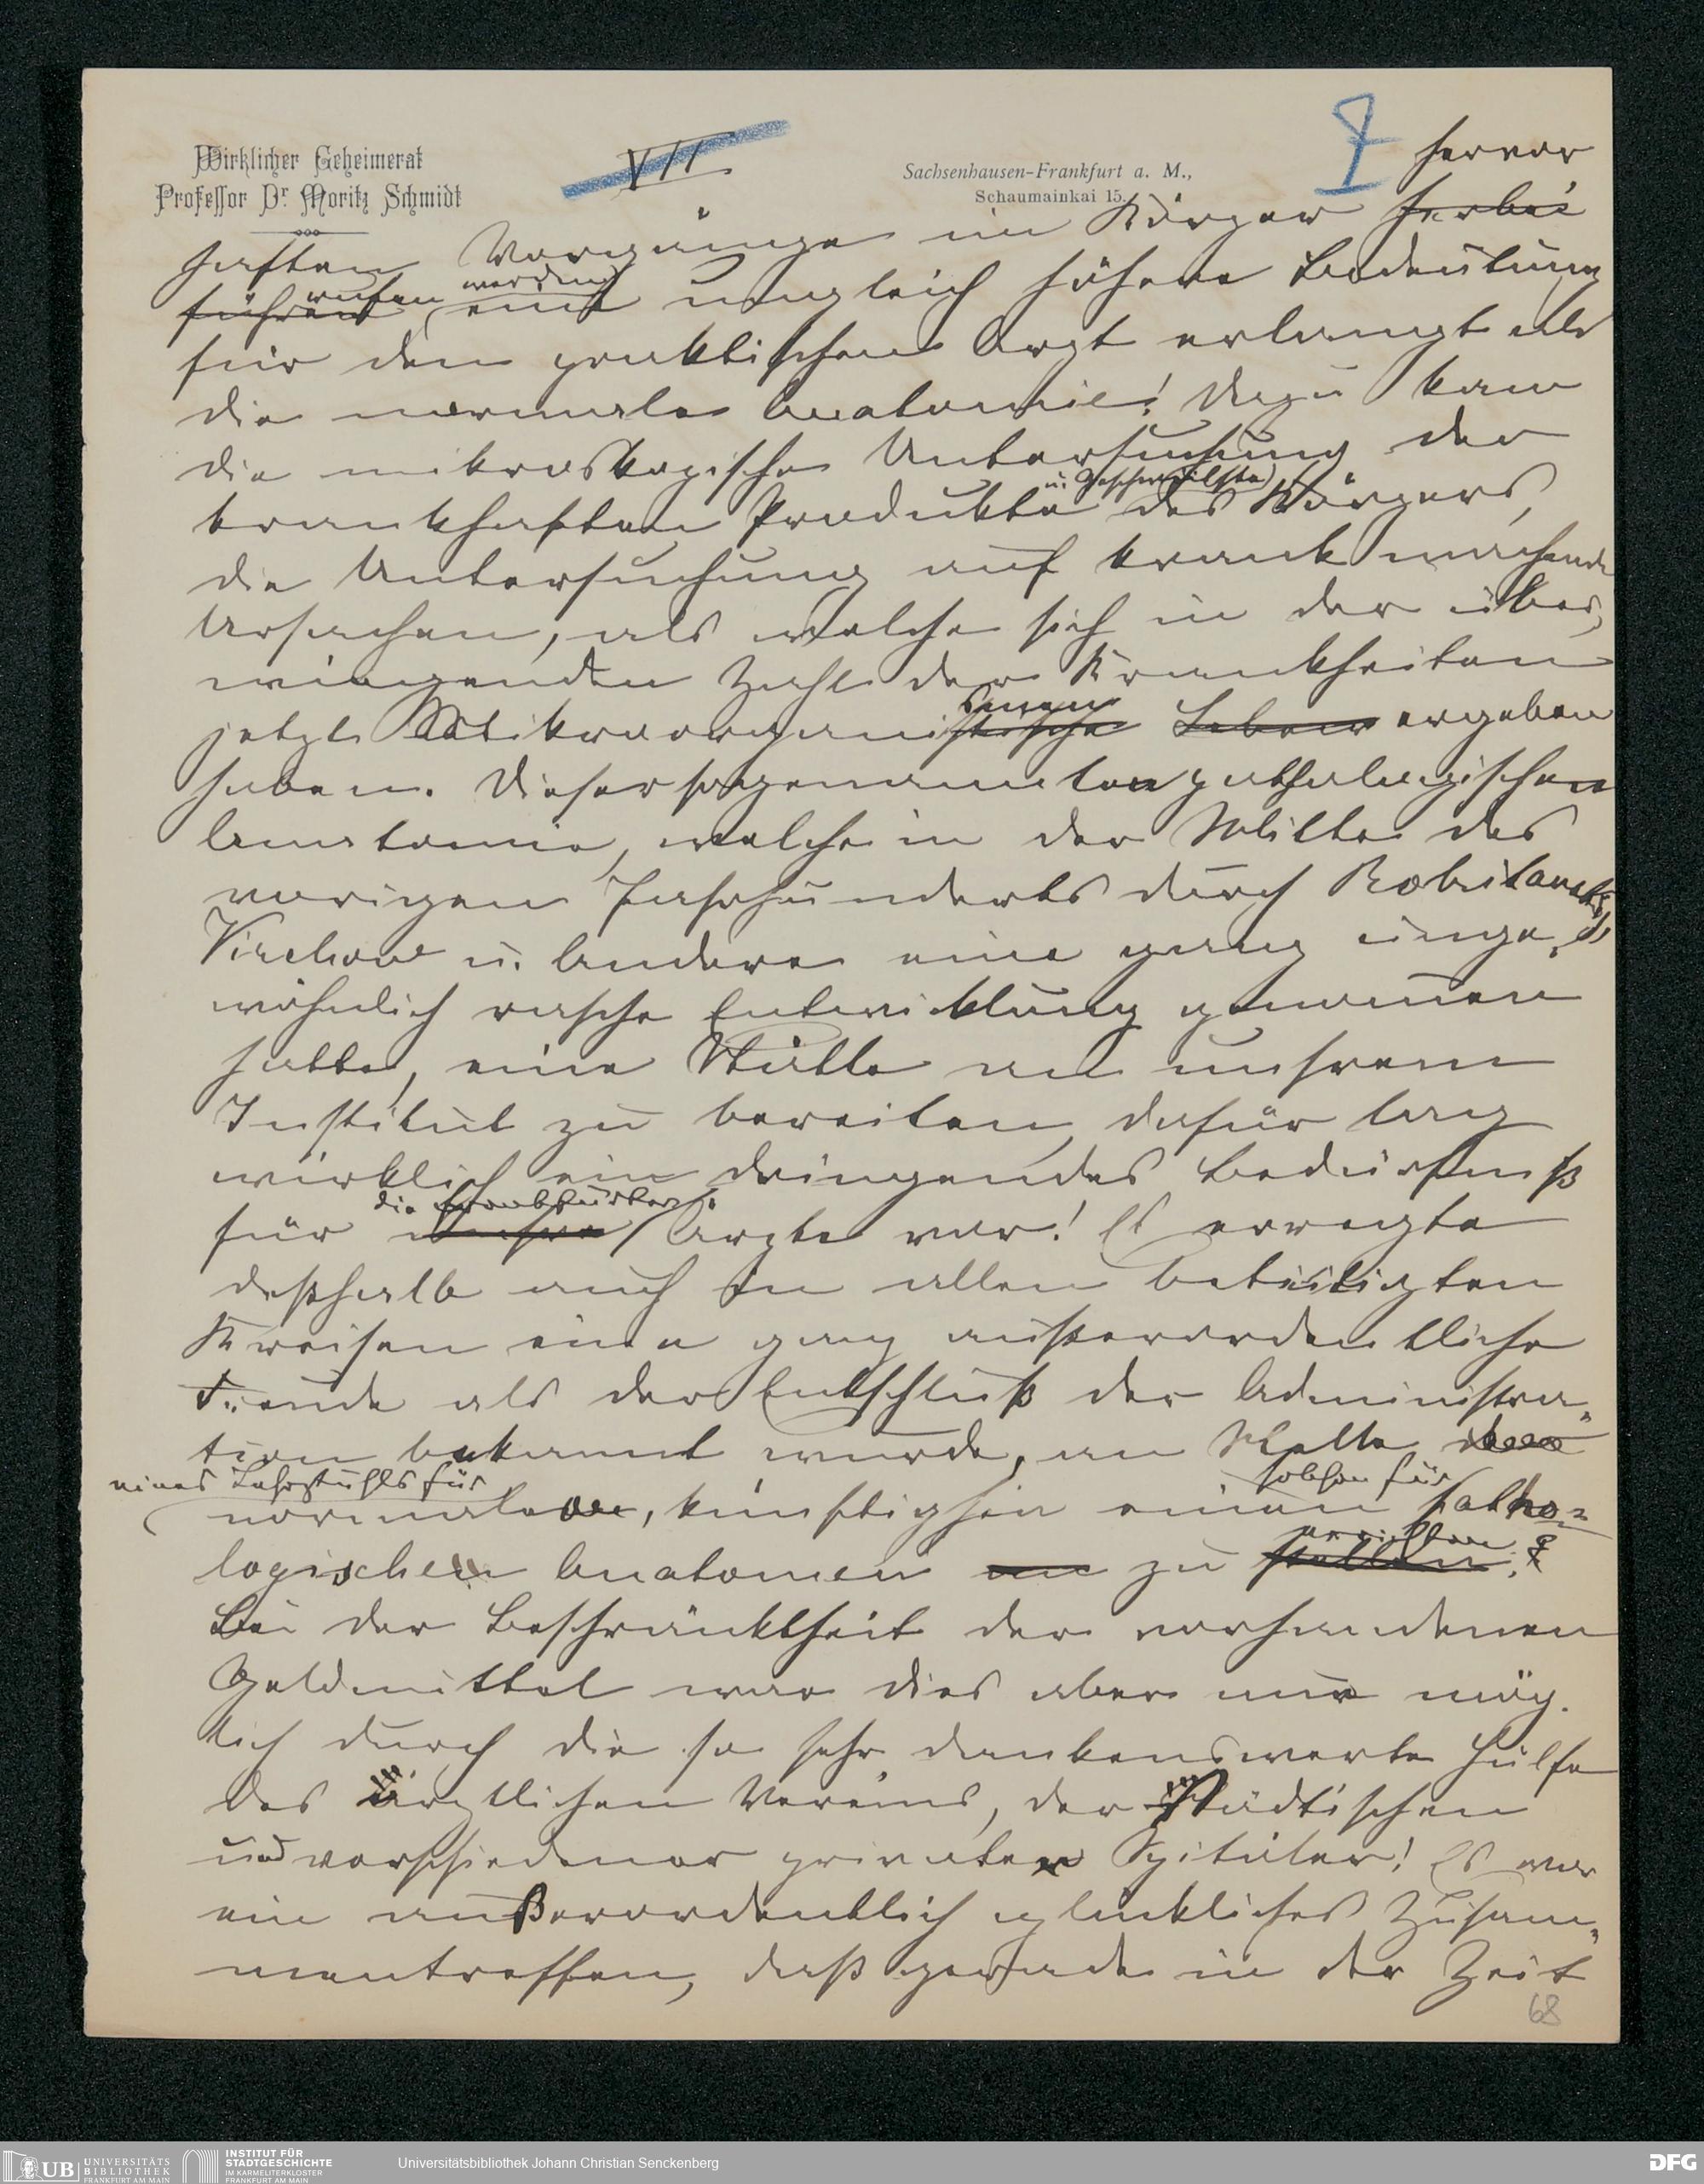 Wirklicher Geheimerat
Professor Dr. Moritz Schmidt
VII
Sachsenhausen-Frankfurt a. M.,
Schaumainkai 15.
hervor
haften Vorgänge im Körper herbei
führen rufen werden eine ungleich höhere Bedeutung
für den praktischen Arzt erlangt als
die normale Anatomie! Dazu kam
die mikroskopische Untersuchung der
u. Geschwülste
krankhaften Produkte des Körpers,
die Untersuchung auf krank machende
Ursachen, als welche sich in der über-
wiegenden Zahl der Krankheiten
jetzt Mikroorganistische Leben ergeben
haben. Dieser sogenannten pathologischen
Anatomie, welche in der Mitte des
vorigen Jahrhunderts durch Rokitansky,
Virchow u. Andere eine ganz unge-
wöhnlich rasche Entwicklung genommen
hatte, eine Stätte an unsrem
Institut zu bereiten, dafür lag
wirklich ein dringendes Bedürfniß
die Frankfurter
für unsre Ärzte vor! Es erregte
deßhalb auch in allen beteiligten
Kreisen eine ganz außerordentliche
Freude als der Entschluß der Administra-
tion bekannt wurde, an Stelle
eines Lehrstuhls für solchen für
normalen, künftighin einen patho-
logischen Anatomen zu errichten stellen.
Bei der Beschränktheit der vorhandenen
Geldmittel war dies aber nur mög-
lich durch die so sehr dankenswerte Hülfe
des ärztlichen Vereins, der städtischen
und verschiedener privater Spitäler! Es war
ein außerordentlich glückliches Zusam-
mentreffen, daß gerade in der Zeit
68
UB UNIVERSITÄTS
BIBLIOTHEK
FRANKFURT AM MAIN
INSTITUT FÜR
STADTGESCHICHTE
IM KARMELITERKLOSTER
FRANKFURT AM MAIN
Universitätsbibliothek Johann Christian Senckenberg
DFG